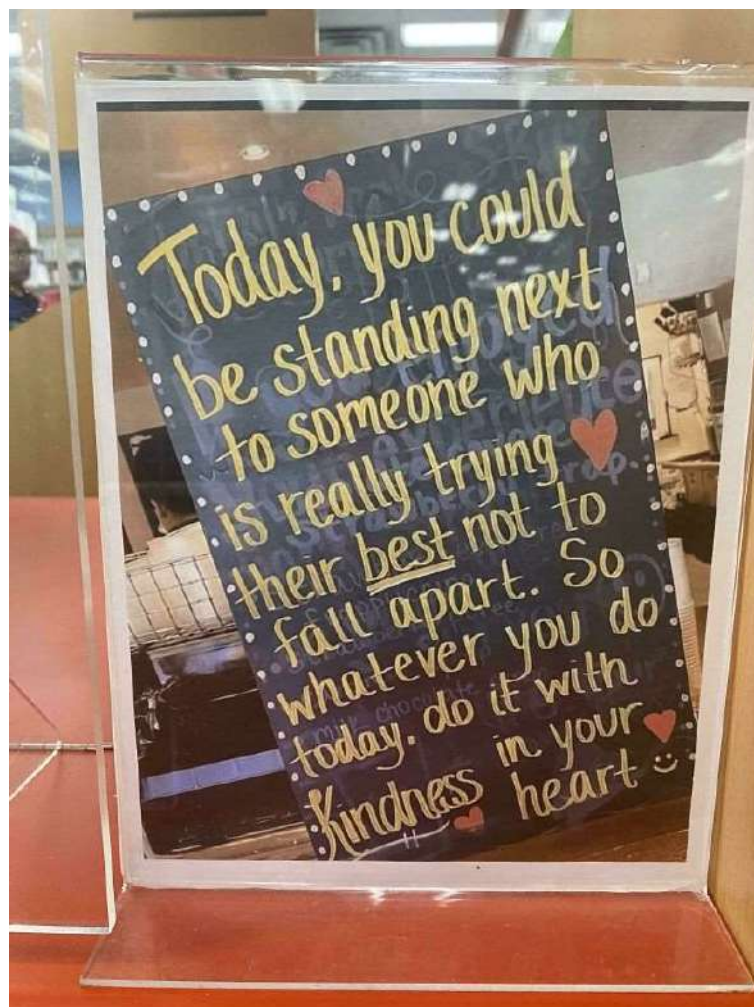 Today, you could
be standing next
to someone who
is really trying
their best not to
fall apart. So
whatever you do
today. do it with
Kindness in your
heart
milk chocolate